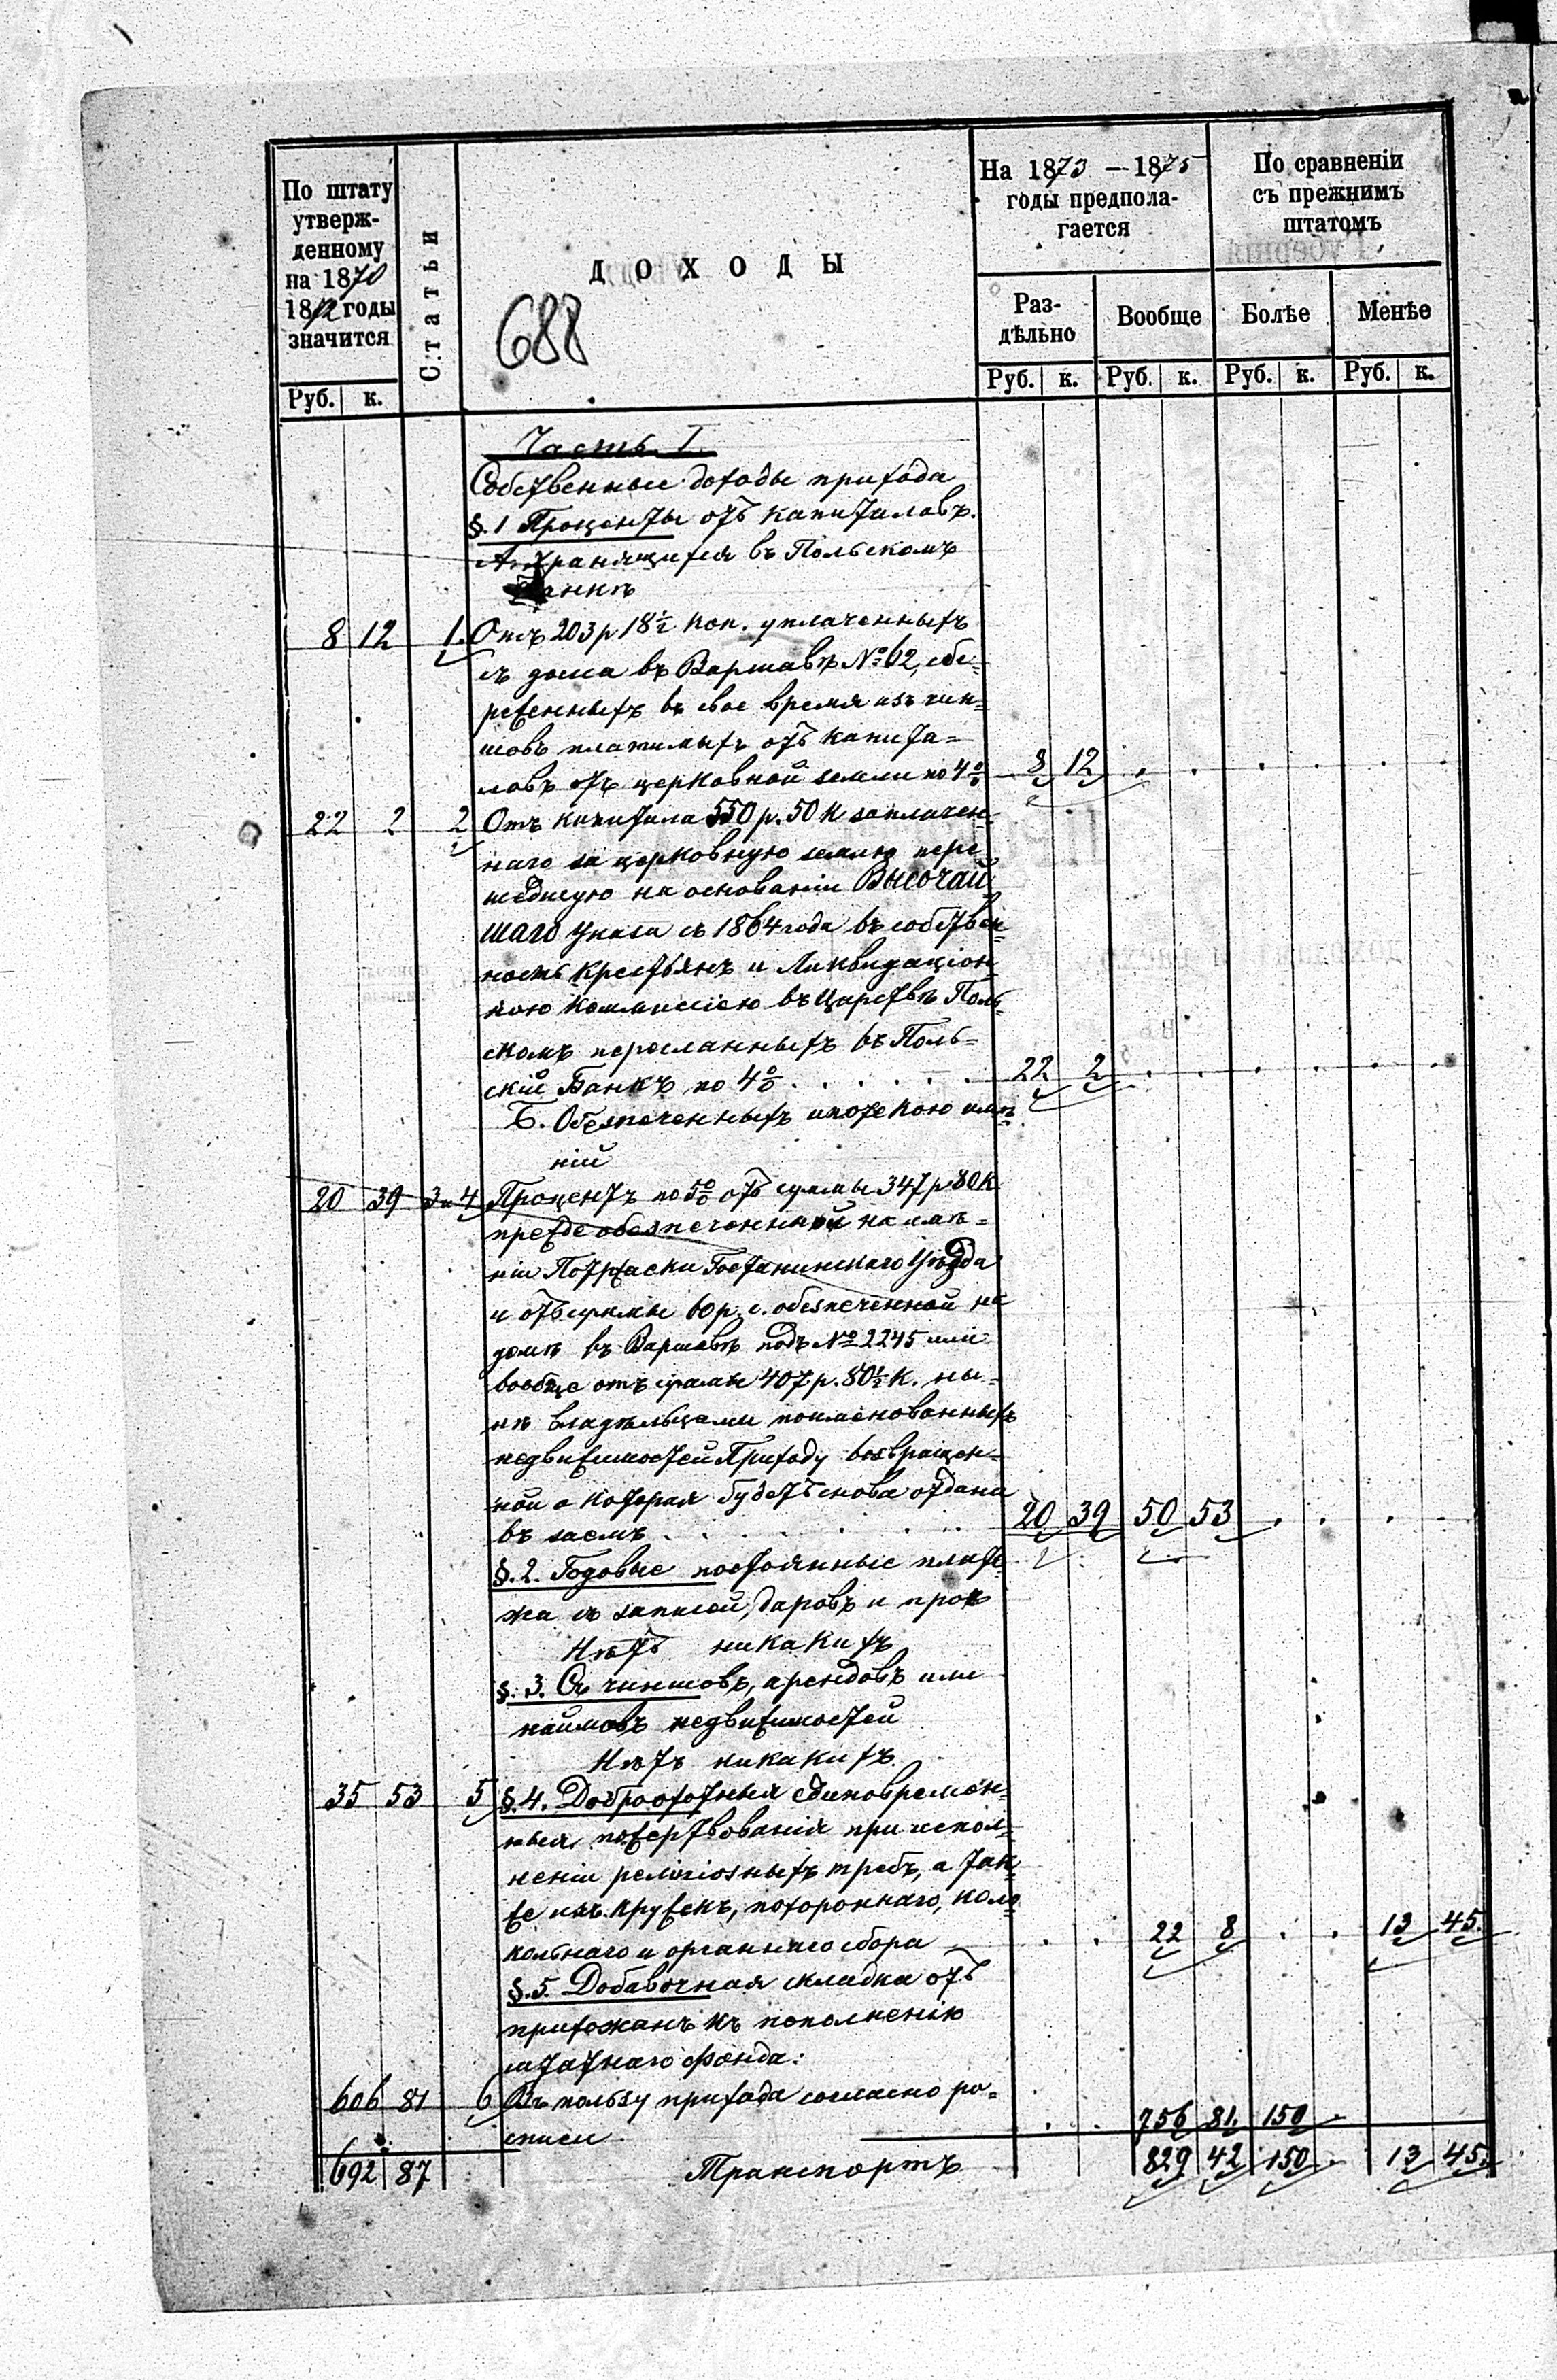 По штату
утверж-
денному
на 1870
1872 годы
значится
Статьи
ДОХОДЫ
688
На 1873 — 1875
годы предпола-
гается
По сравненіи
съ прежнимъ
штатомъ
Раз-
дѣльно
Вообще
Болѣе
Менѣе
Руб. к.
Руб. к. Руб. к. Руб. к. Руб. к.
Часть I.
Собственные доходы прихода
§.1 Проценты отъ капиталовъ.
А. хранящихся въ Польскомъ
Банкѣ
8 12 1. Отъ 203 р 18½ коп. уплаченныхъ
съ дома въ Варшавѣ № 62, сбе-
реженныхъ въ свое время изъ чин=
шовъ платимыхъ отъ капита=
ловъ отъ церковной земли по 4% 8 12
22 2 2 Отъ капитала 550 р. 50 к заплачен-
наго за церковную землю пере
шедшую на основаніи Высочай
шаго указа съ 1864 года въ собствен=
ность крестьянъ и Ликвидаціон
ною Коммисіею въ Царствѣ Поль
скомъ пересланныхъ въ Поль=
скій Банкъ по 4% 22 2
Б. Обезпеченныхъ ипотекою имѣ=
ній
20 39 3 и 4 Процентъ по 5% отъ суммы 347 р 80 к
прежде обезпеченной на имѣ=
ніи Гостынинскаго Уѣзда
и отъ суммы 60 р. с. обезпеченной на
домѣ въ Варшавѣ подъ № 2245 или
вообще отъ суммы 407 р. 80½ к. ны=
нѣ владѣльцами поименованныхъ
недвижимостей Приходу возвращен=
ной а которая будетъ снова отдана
въ заемъ 20 39 50 53
§.2. Годовые постоянные плате
жа съ записей, даровъ и проч
Нѣтъ никакихъ
§.3. Съ чиншовъ, арендовъ или
наймовъ недвижимостей
Нѣтъ никакихъ
35 53 5 §.4. Доброхотныя единовремен=
ныя пожертвованія при испол=
неніи религіозныхъ требъ, а так
же изъ кружекъ, похороннаго, коло
кольнаго и органнаго сбора 22 8 13 45.
§.5. Добавочная складка отъ
прихожанъ къ пополненію
штатнаго фонда:
606 81 6 Въ пользу прихода согласно ро=
списи 756 81. 150
692 87 Транспортъ 829 42 150 13 45.